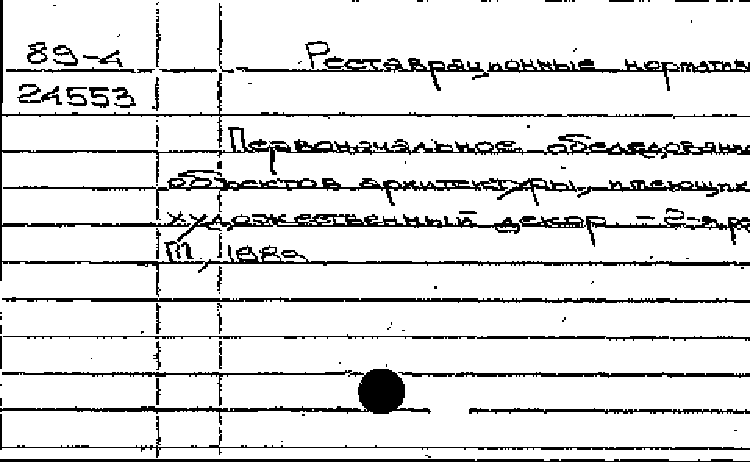 89-4 Реставрационные норматив
24553
Первоначальное обследовани
объектов архитектуры, имеющих
художественный декор. - 2-я ре
М, 1988